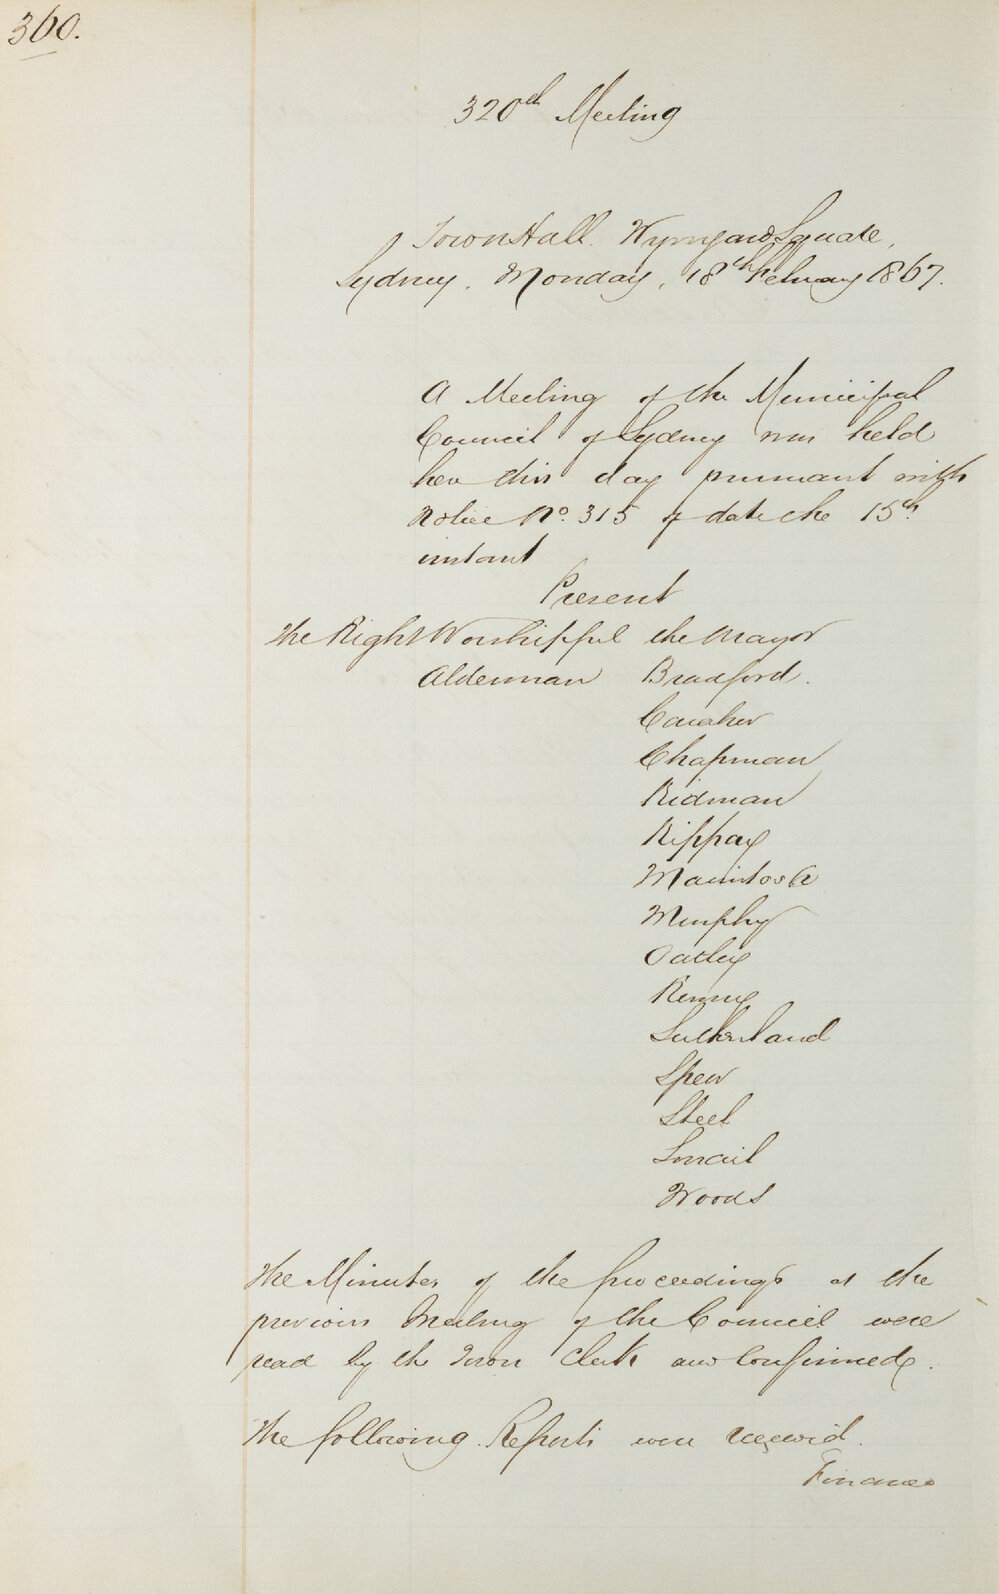 360.
320th Meeting
Town Hall. Wynyard Square,
Sydney. Monday, 18th February 1867.
A Meeting of the Municipal
Council of Sydney was held
here this day pursuant with
Notice No. 315 of date the 15th
instant
Present
The Right Worshipful the Mayor
Alderman Bradford.
Caraher
Chapman
Kidman
Kippax
Macintosh
Murphy
Oatley
Renny
Sutherland
Speer
Steel
Smail
Woods
The Minutes of the proceedings at the
previous Meeting of the Council were
read by the Town Clerk and Confirmed.
The following Reports were received.
Finance